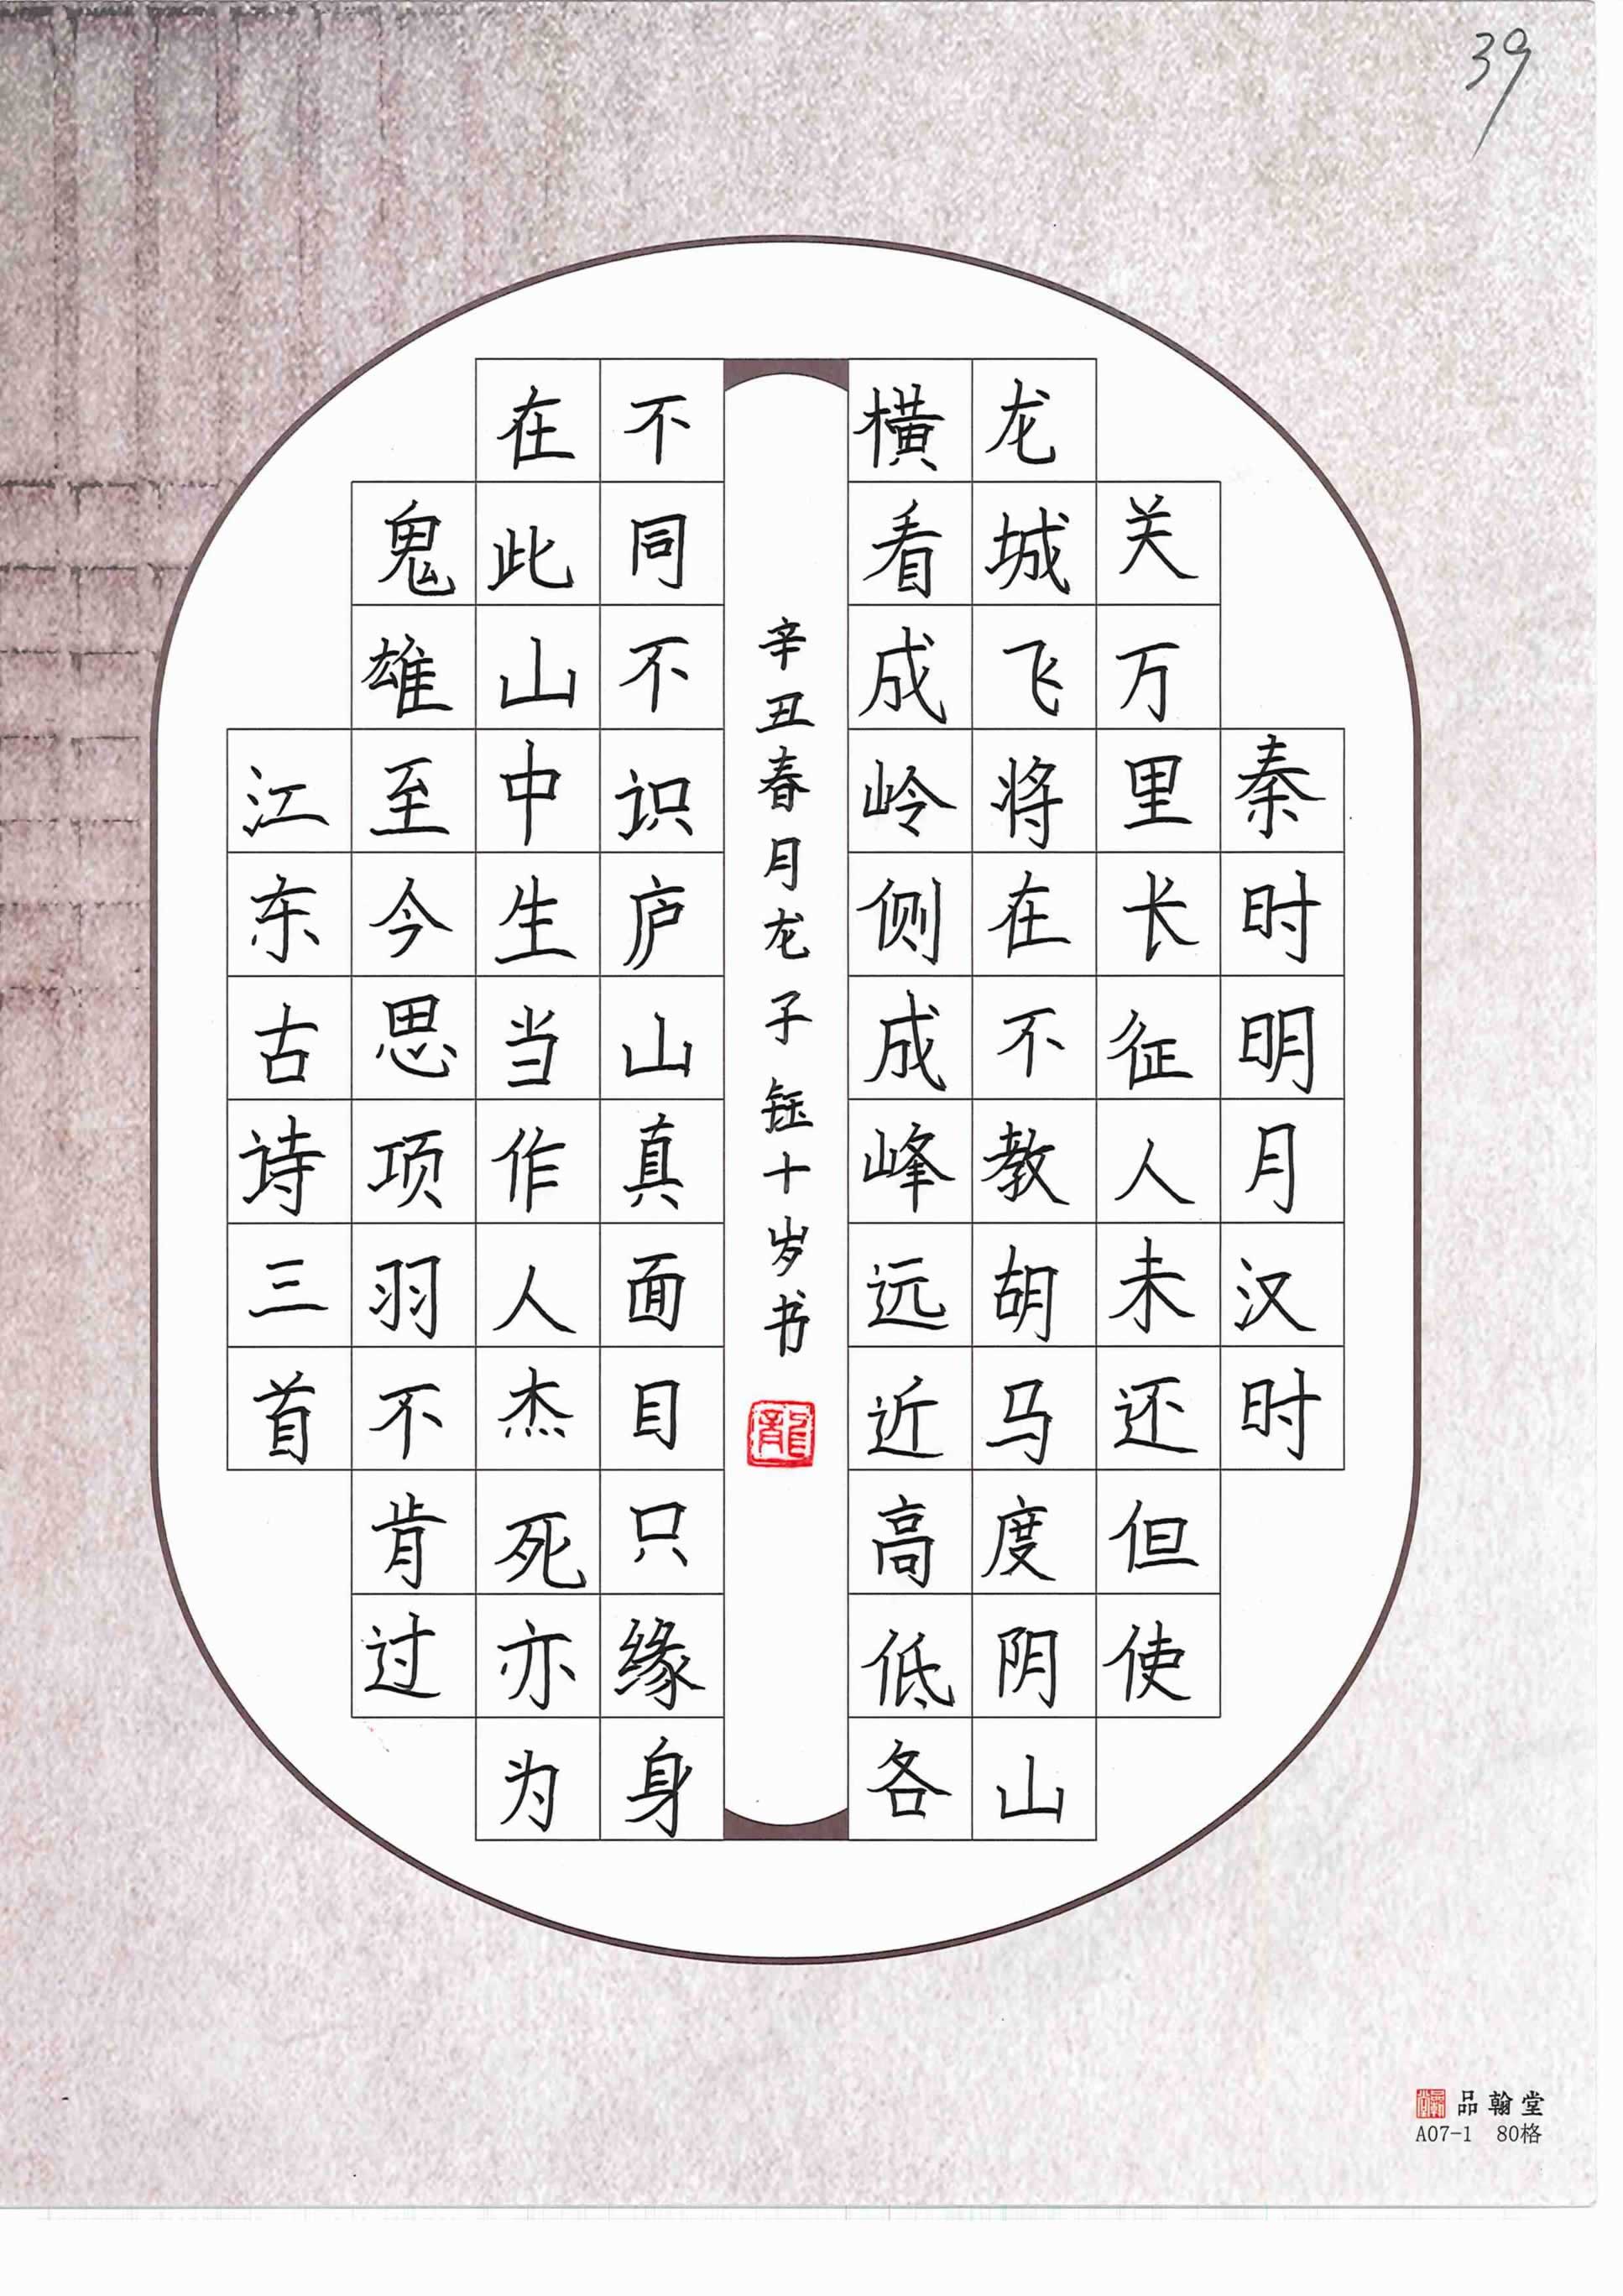 39
秦时明月汉时
关万里长征人未还但使
龙城飞将在不教胡马度阴山
横看成岭侧成峰远近高低各
辛丑春月龙子钰十岁书
龍
不同不识庐山真面目只缘身
在此山中生当作人杰死亦为
鬼雄至今思项羽不肯过
江东古诗三首
品翰堂
A07-1 80格